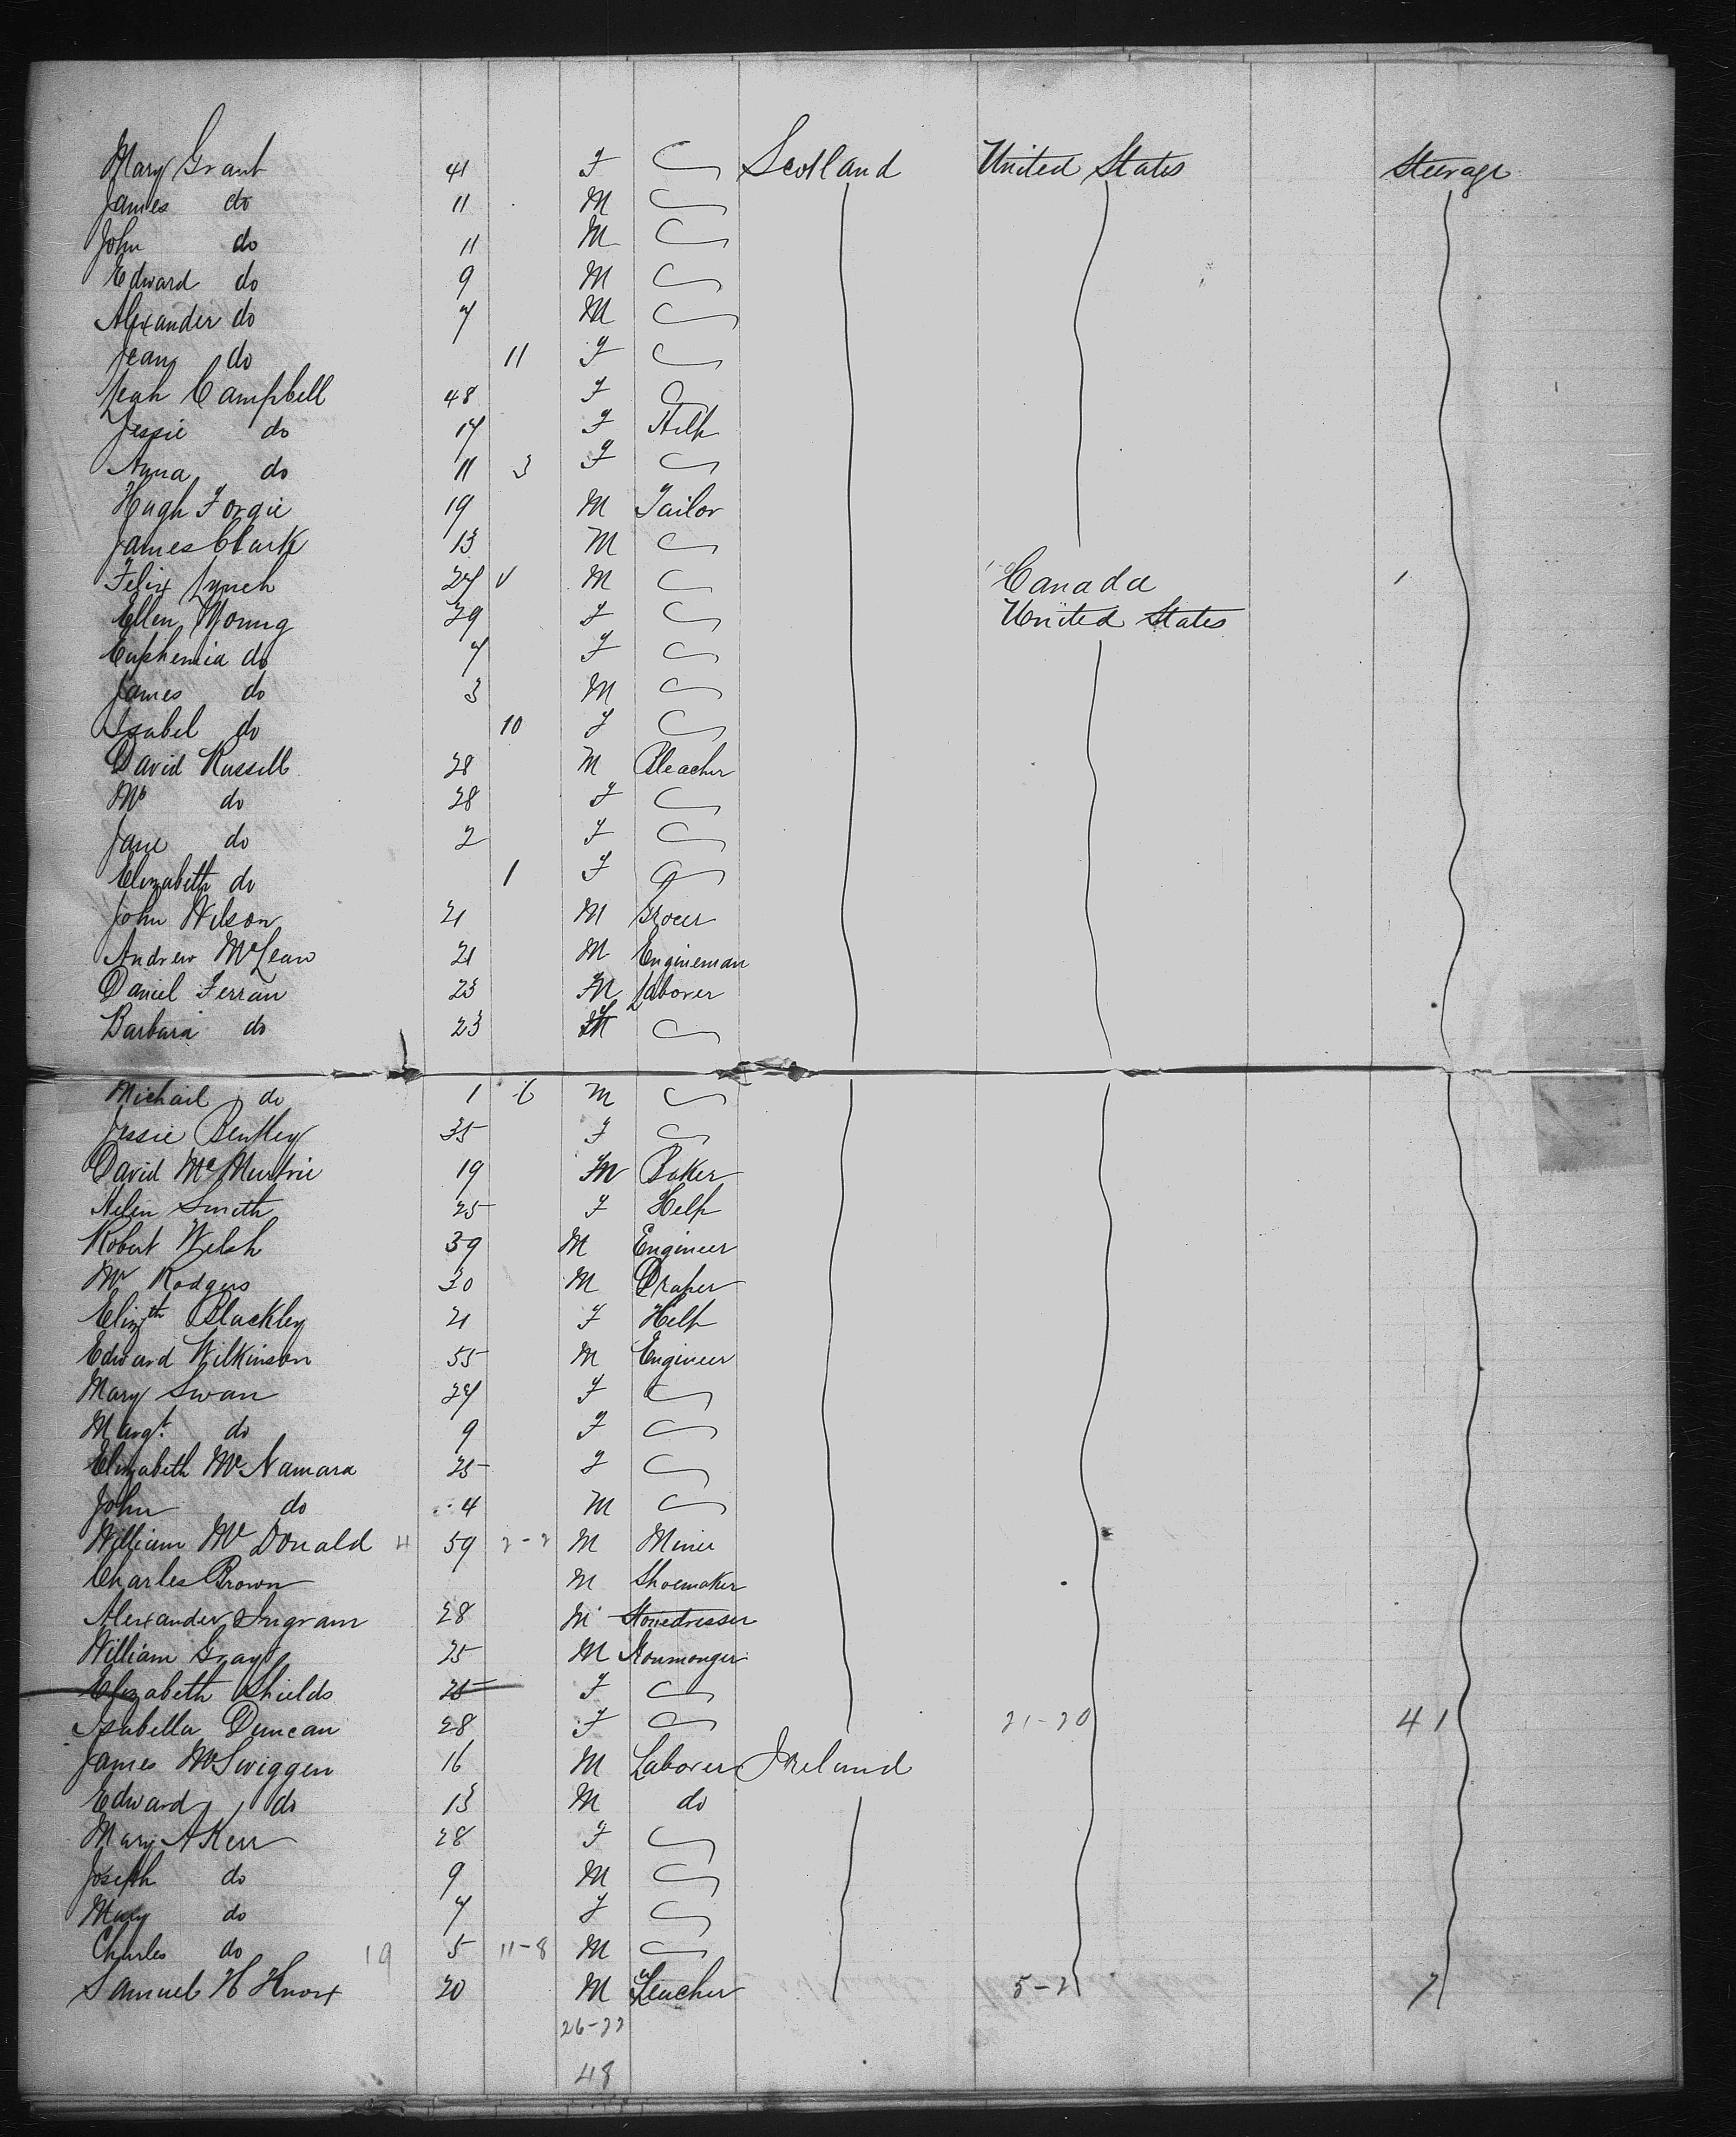 Mary Grant 41 F Scotland United States Steerage
James do 11 M
John do 11 M
Edward do 9 M
Alexander do 7 M
Jean do 11 F
Leah Campbell 48 F
Jessie do 17 F Help
Anna do 11 3 F
Hugh Forgie 19 M Tailor
James Clark 13 M
Felix Lynch 27 M Canada
Ellen Young 29 F United States
Euphemia do 7 F
James do 3 M
Isabel do 10 F
David Russell 28 M Bleacher
Mrs do 28 F
Jane do 2 F
Elizabeth do 1 F
John Wilson 21 M Grocer
Andrew McLean 21 M Engineman
Daniel Ferran 23 M Laborer
Barbara do 23 F
Michail do 1 6 M
Jessie Bentley 35 F
David McMurtrie 19 M Baker
Helen Smith 25 F Help
Robert Welsh 39 M Engineer
Mr Rodgers 30 M Draper
Elizth Blackley 21 F Help
Edward Wilkinson 55 M Engineer
Mary Swan 27 F
Margt. do 9 F
Elizabeth McNamara 25 F
John do 4 M
William McDonald 4 59 2-2 M Miner
Charles Brown M Shoemaker
Alexander Ingram 28 M Stonedresser
William Gray 25 M Ironmonger
Elizabeth Shields 25 F
Isabella Duncan 28 F 21-20 41
James McSwiggen 16 M Laborer Ireland
Edward do 13 M do
Mary A Kerr 28 F
Joseph do 9 M
Mary do 7 F
Charles do 19 5 11-8 M
Samuel H Knox 20 M Teacher 5-2 7
26-22
48